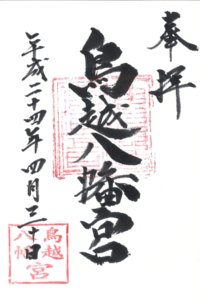 奉拝
鳥越八幡宮
平成二十四年四月三十日
鳥越
八幡
宮